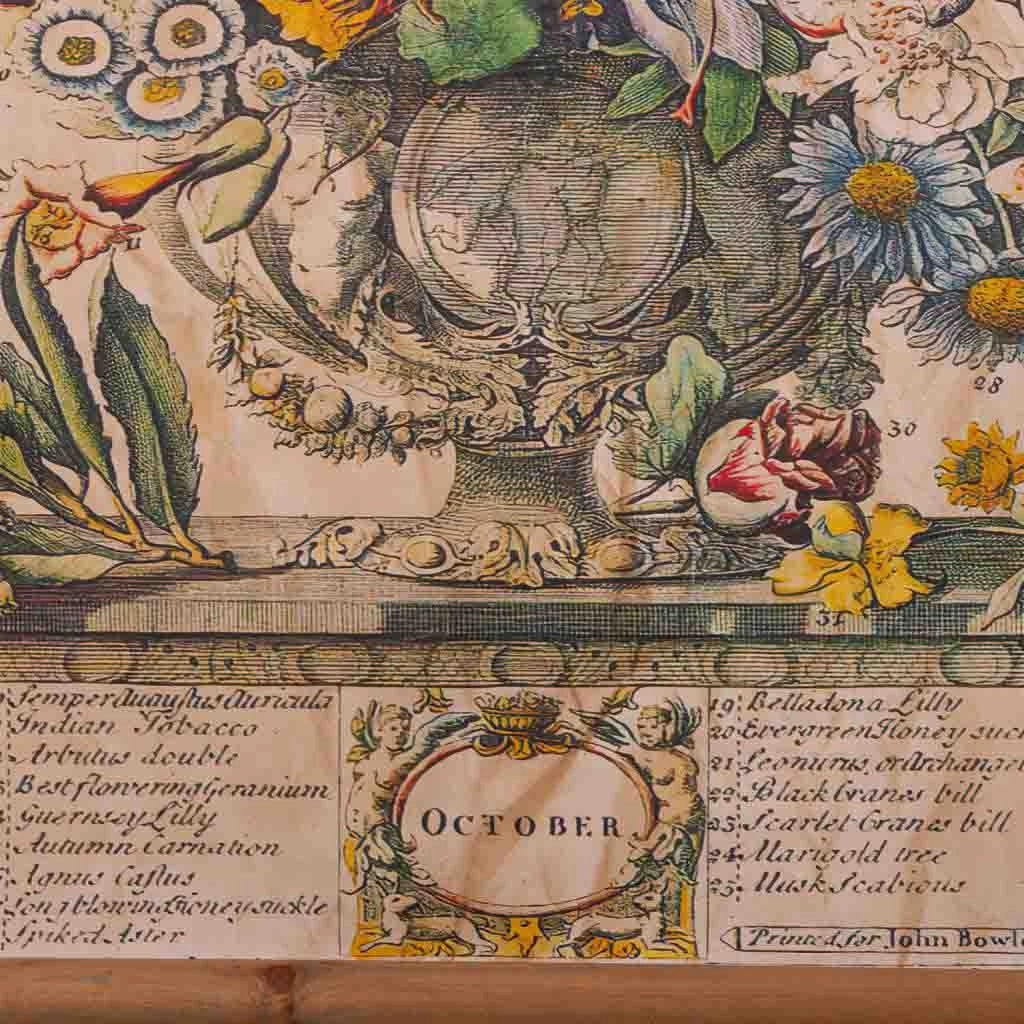 11
28
30
31
Semper Augustus Auricula
Indian Tobacco
Arbutus double
Best flowering Geranium
Guernsey Lilly
Autumn Carnation
Agnus Castus
Long blowing Honey suckle
Spiked Aster
OCTOBER
19 Belladona Lilly
20 Evergreen Honey suc
21 Leonurus, or Archangel
22 Black Cranes bill
23 Scarlet Cranes bill
24 Marigold tree
25 Musk Scabious
Printed for John Bowl